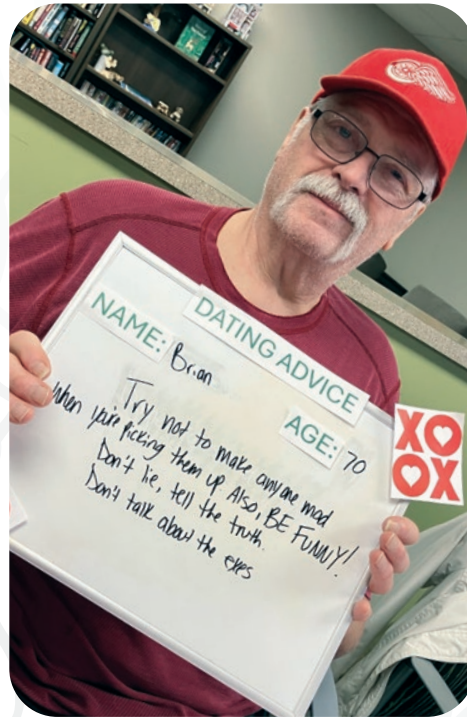 DATING ADVICE
NAME: Brian
AGE: 70
Try not to make anyone mad
When you're picking them up Also, BE FUNNY!
Don't lie, tell the truth.
Don't talk about the exes
XO
OX